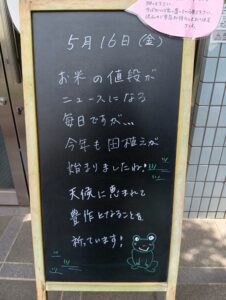 5月16日(金)
お米の値段が
ニュースになる
毎日ですが...
今年も田植えが
始まりましたね!
天候に恵まれて
豊作となることを
祈っています!